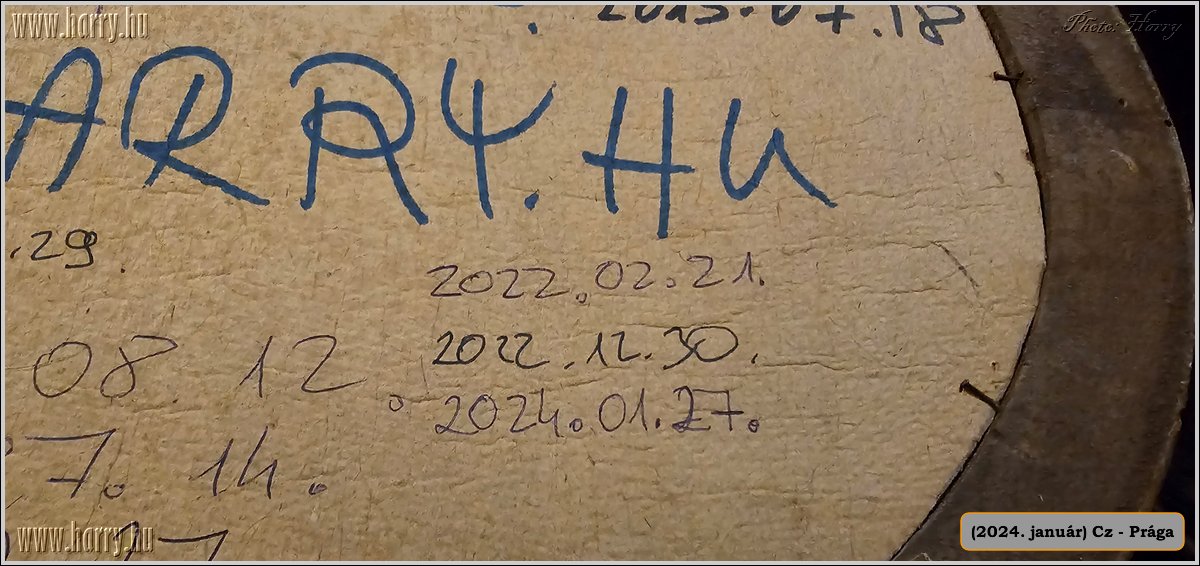 www.harry.hu
Photo: Harry
2013.07.18
ARRY.HU
.29.
2022.02.21.
2022.12.30.
08.12.
2024.01.27.
7.14.
www.harry.hu
(2024. január) Cz - Prága